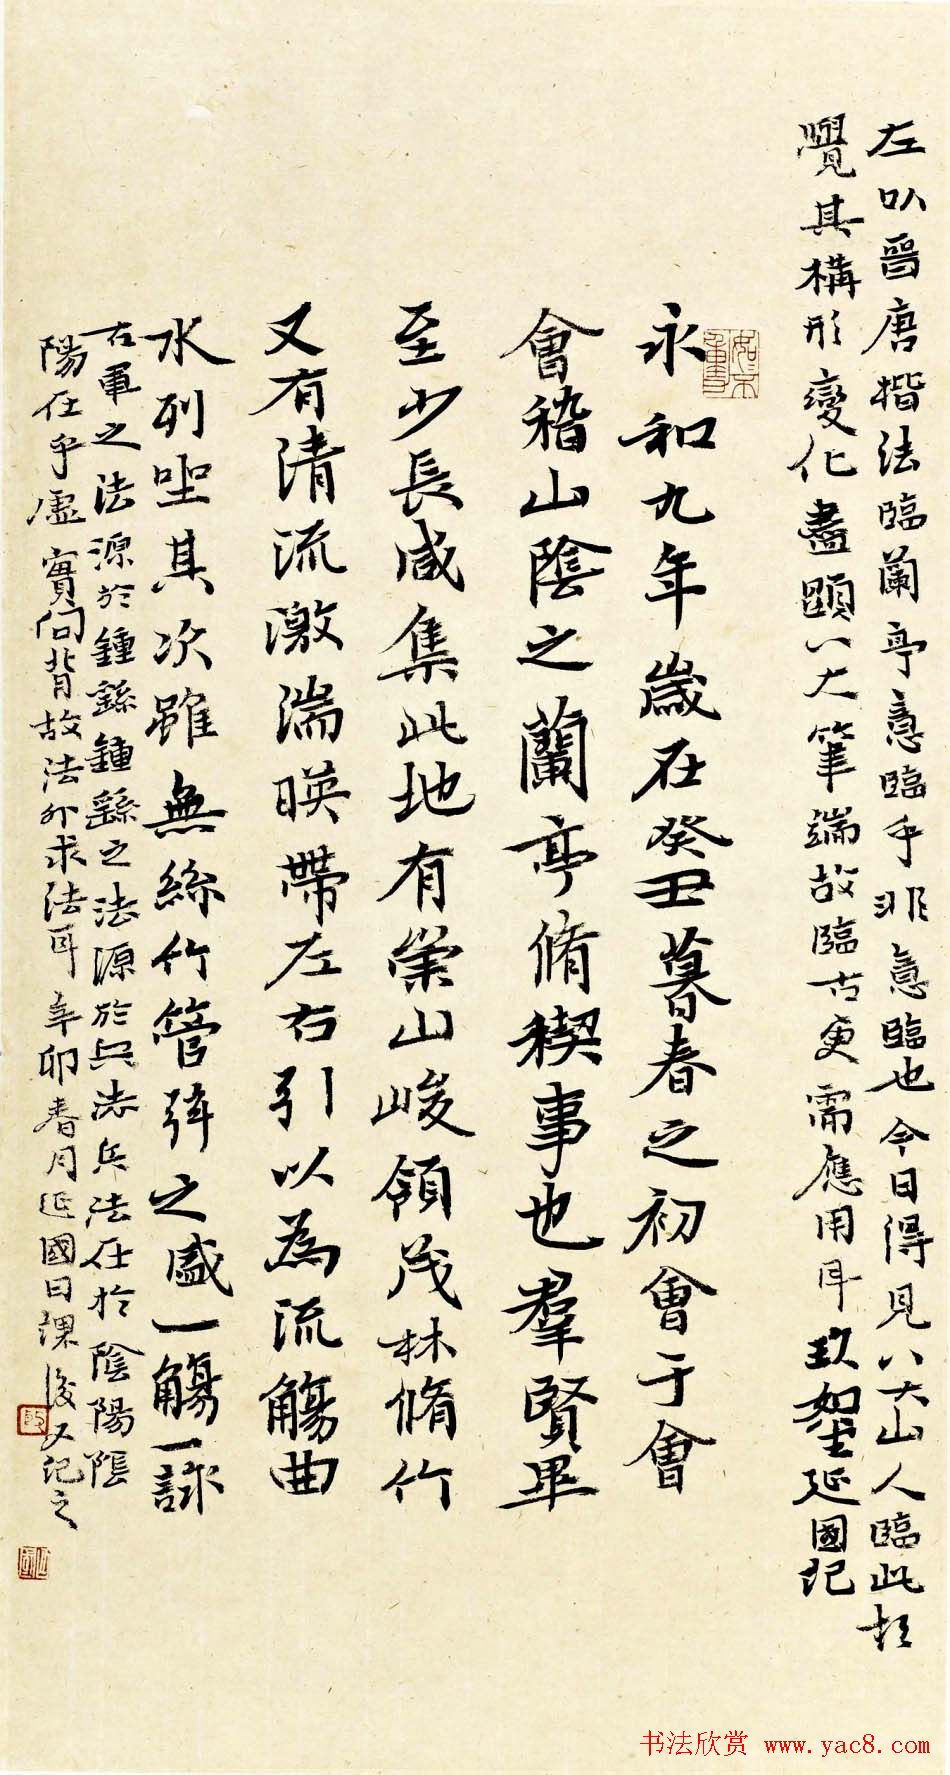 左以晉唐楷法臨蘭亭意臨乎非意臨也今日得見八大山人臨此校
覺其構形變化盡顯八大筆端故臨古更需應用耳玖如堂延國記
永和九年歲在癸丑暮春之初會于會
會稽山陰之蘭亭脩稧事也羣賢畢
至少長咸集此地有崇山峻領茂林脩竹
又有清流激湍暎帶左右引以為流觴曲
水列坐其次雖無絲竹管弦之盛一觴一詠
右軍之法源於鍾繇鍾繇之法源於兵法兵法在於陰陽陰
陽在乎虛實向背故法外求法耳辛卯春月延國日課後又記之
书法欣赏 www.yac8.com